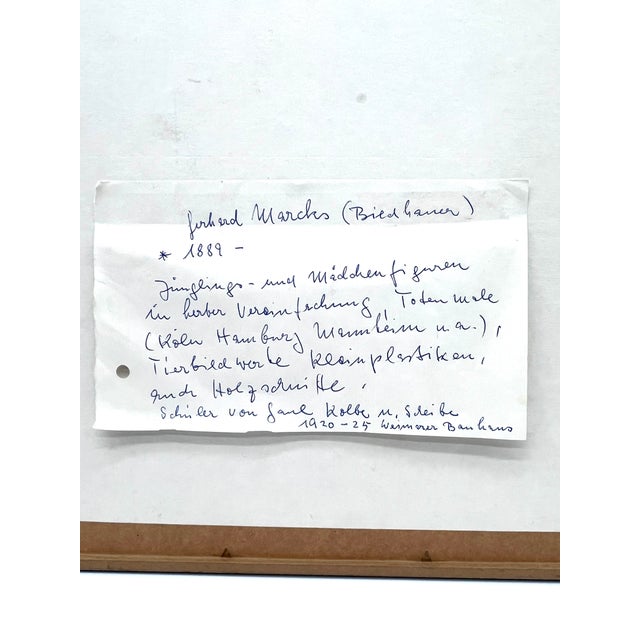 Gerhard Marcks (Bildhauer)
* 1889 -
Jünglings- und Mädchenfiguren
in herber Vereinfachung, Totenmale
(Köln Hamburg Mannheim u.a.),
Tierbildwerke Kleinplastiken,
auch Holzschnitte,
Schüler von Kolbe u. Scheibe
1920-25 Weimarer Bauhaus